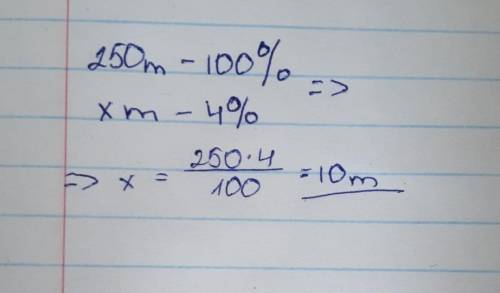 250m - 100%
xm - 4% =>
=> x = 250·4/100 = 10m